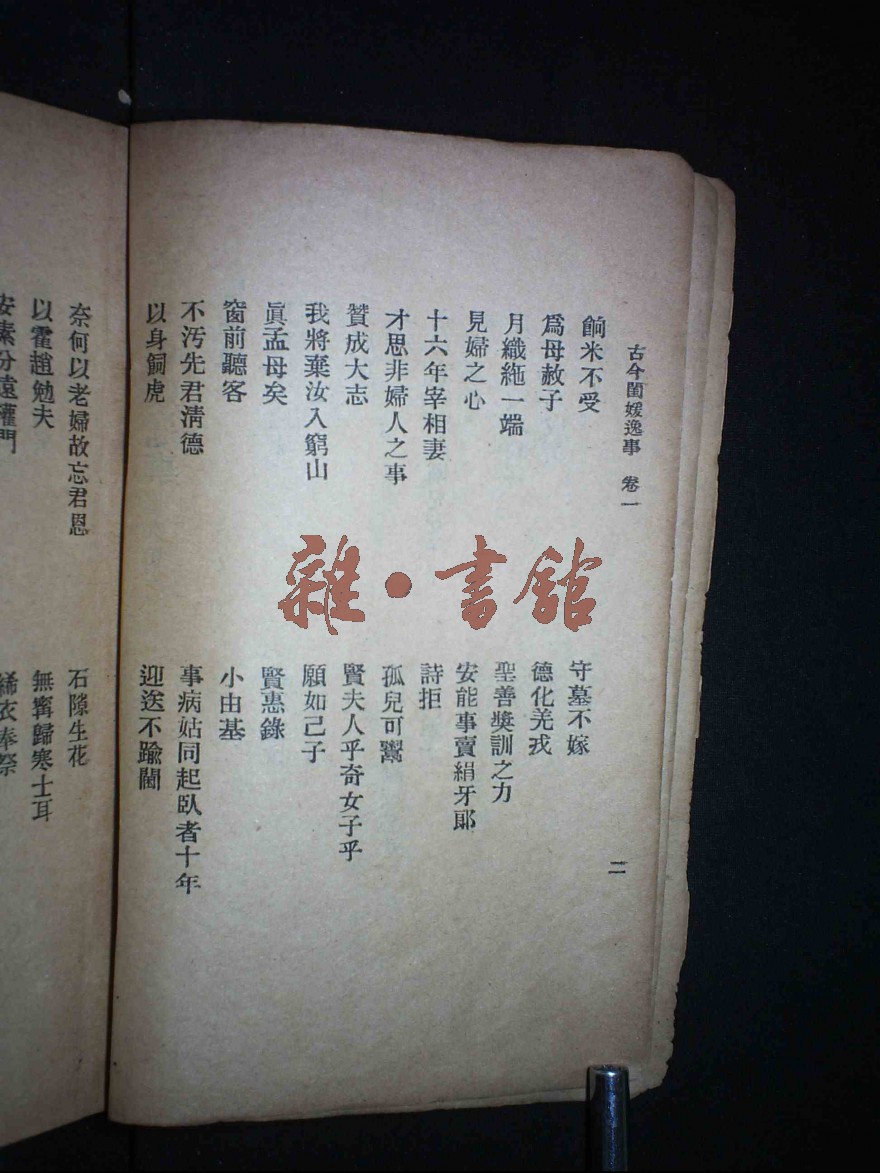 古今閨媛逸事 卷一 二
餉米不受 守墓不嫁
爲母赦子 德化羌戎
月織絁一端 聖善獎訓之力
見婦之心 安能事賣絹牙郞
十六年宰相妻 詩拒
才思非婦人之事 孤兒可鸞
贊成大志 賢夫人乎奇女子乎
我將棄汝入窮山 願如己子
眞孟母矣 賢惠錄
窗前聽客 小由基
不汚先君淸德 事病姑同起臥者十年
以身飼虎 迎送不踰閫
奈何以老婦故忘君恩 石隙生花
以霍趙勉夫 無寗歸寒士耳
安素分遠權門 絺衣奉祭
雜·書館